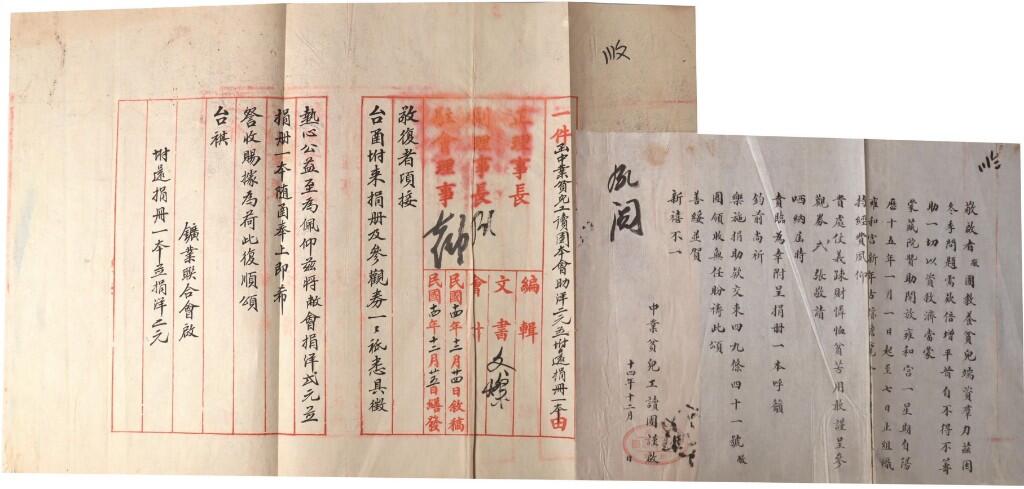 収
一件函中業貧兒工讀團本會助洋二元並附還捐册一本由
正理事長
副理事長
駐會理事
編輯
文書
會計
民國十四年十二月廿四日敘稿
民國十四年十二月廿五日繕發
敬復者項接
台函附來捐册及參觀券一一祗悉具徵
熱心公益至為佩仰茲將敝會捐洋弍元並
捐册一本隨函奉上即希
詧收賜據為荷此復順頌
台祺
鑛業聯合會啟
附還捐册一本並捐洋二元
敬啟者敝團教養貧兒端資羣力茲因
冬季問題需欵倍增平昔自不得不籌
助一切以資救濟當蒙
蒙藏院贊助開放雍和宮一星期自陽
歷十五年一月一日起至七日止組織
雍和宮新年
貴處仗義疎財博恤貧苦用敢謹呈參
觀券 張敬請
哂納屆時
貴臨為幸附呈捐册一本呼籲
鈞前尚祈
樂施捐助欵交東四九條四十一號敝
團領收無任盼禱此頌
善綏並賀
新禧不一
中業貧兒工讀團謹啟
十四年十二月 日